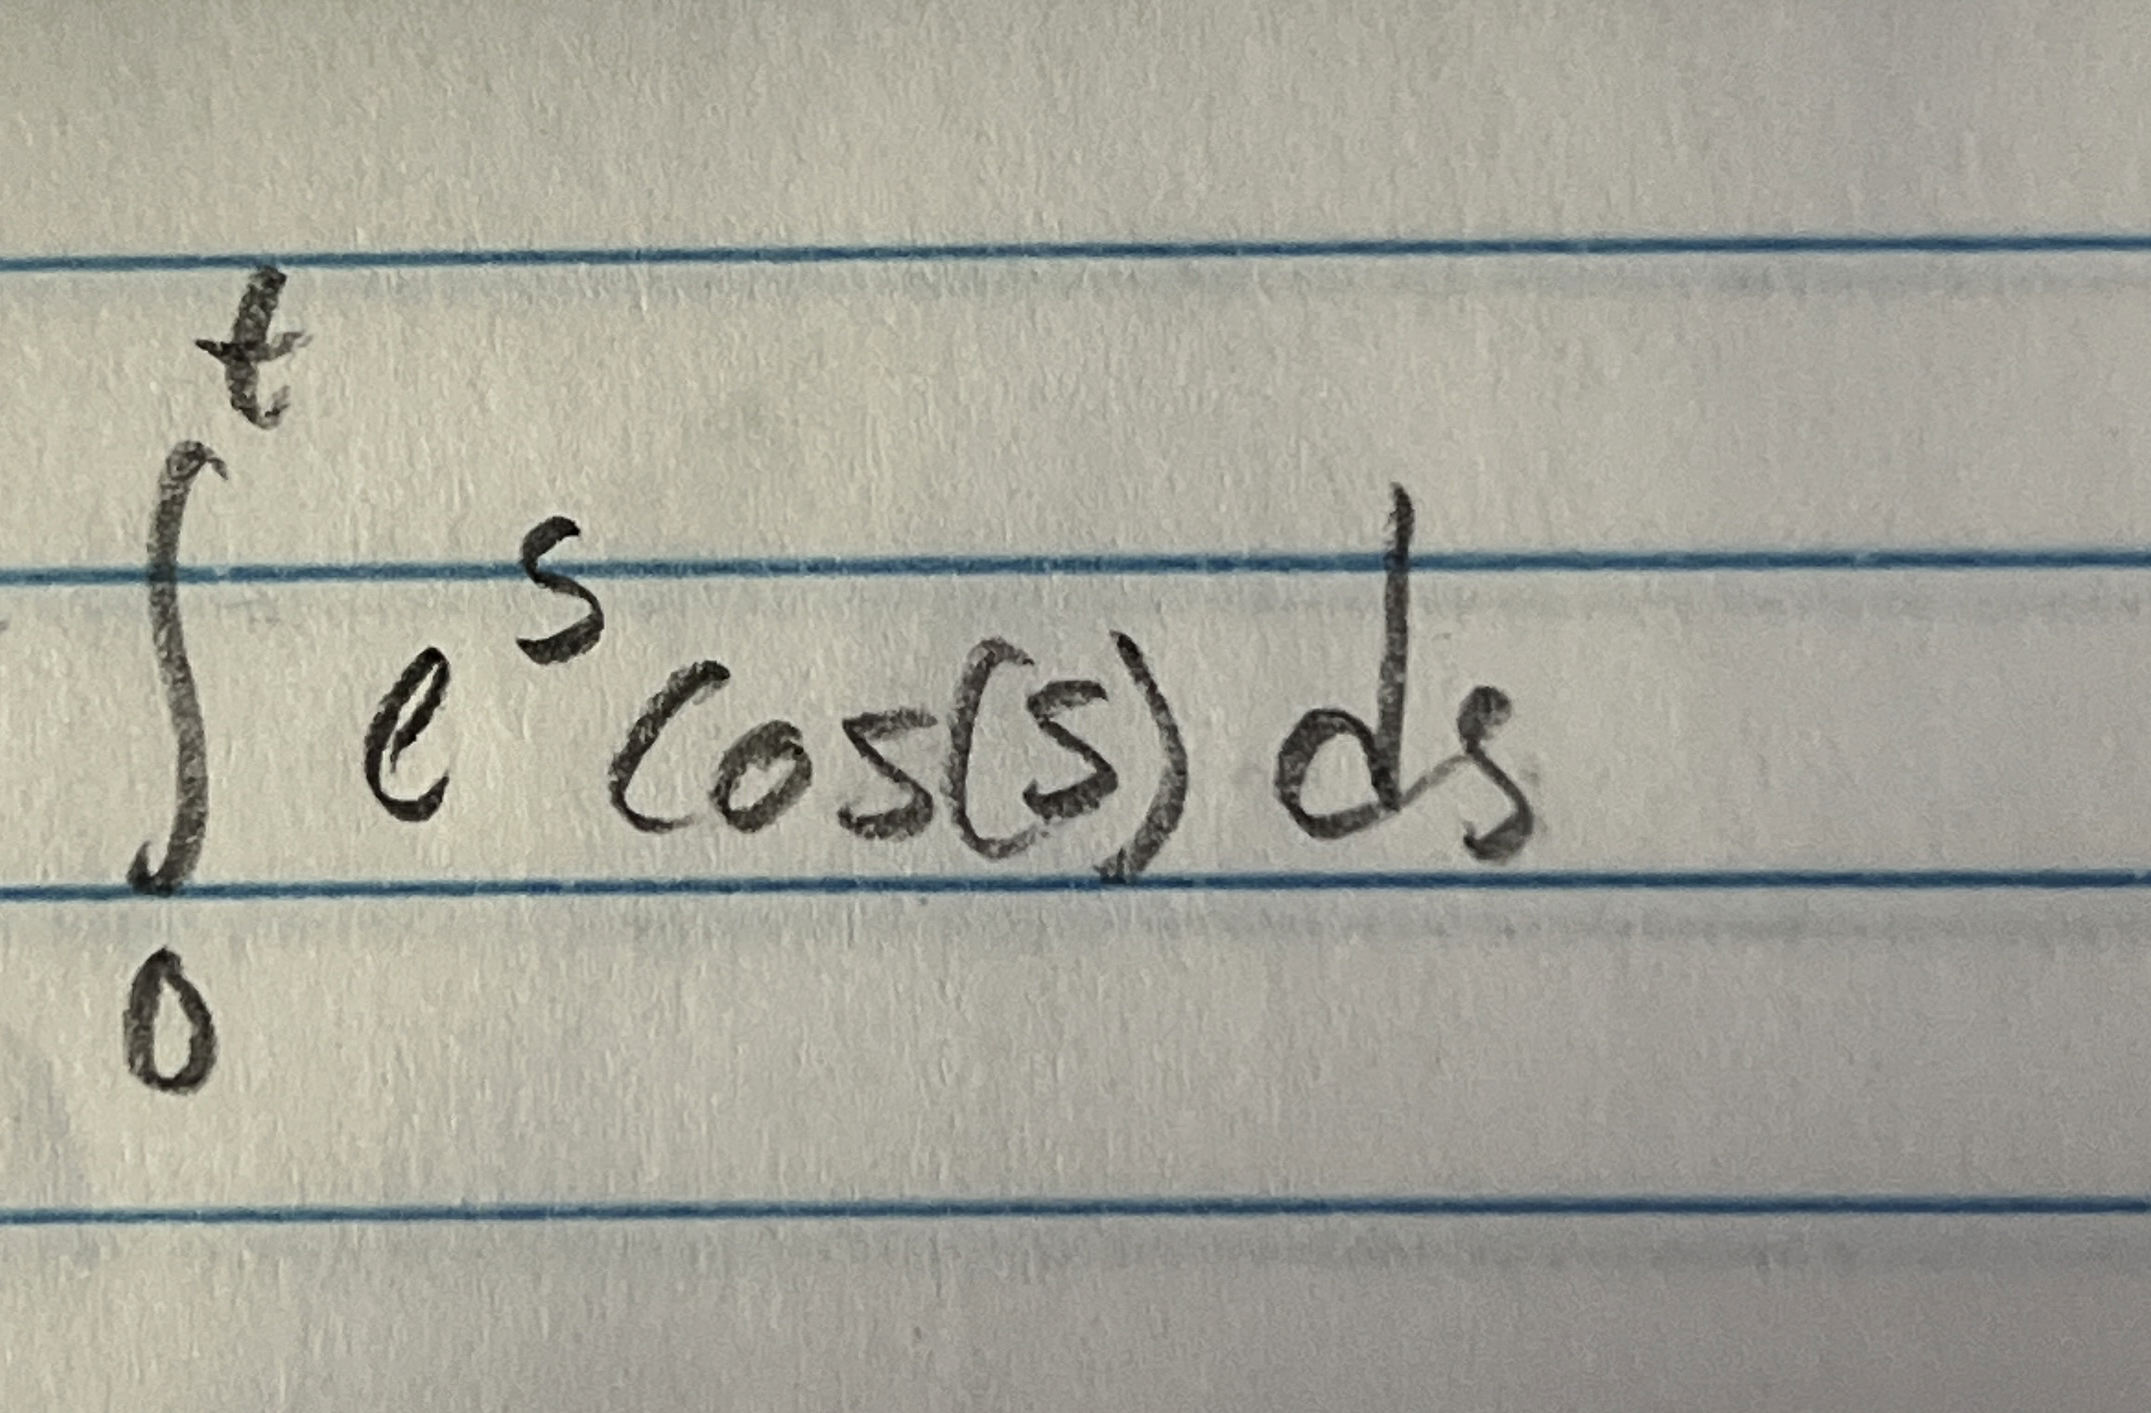 ∫₀ᵗ eˢ cos(s) ds